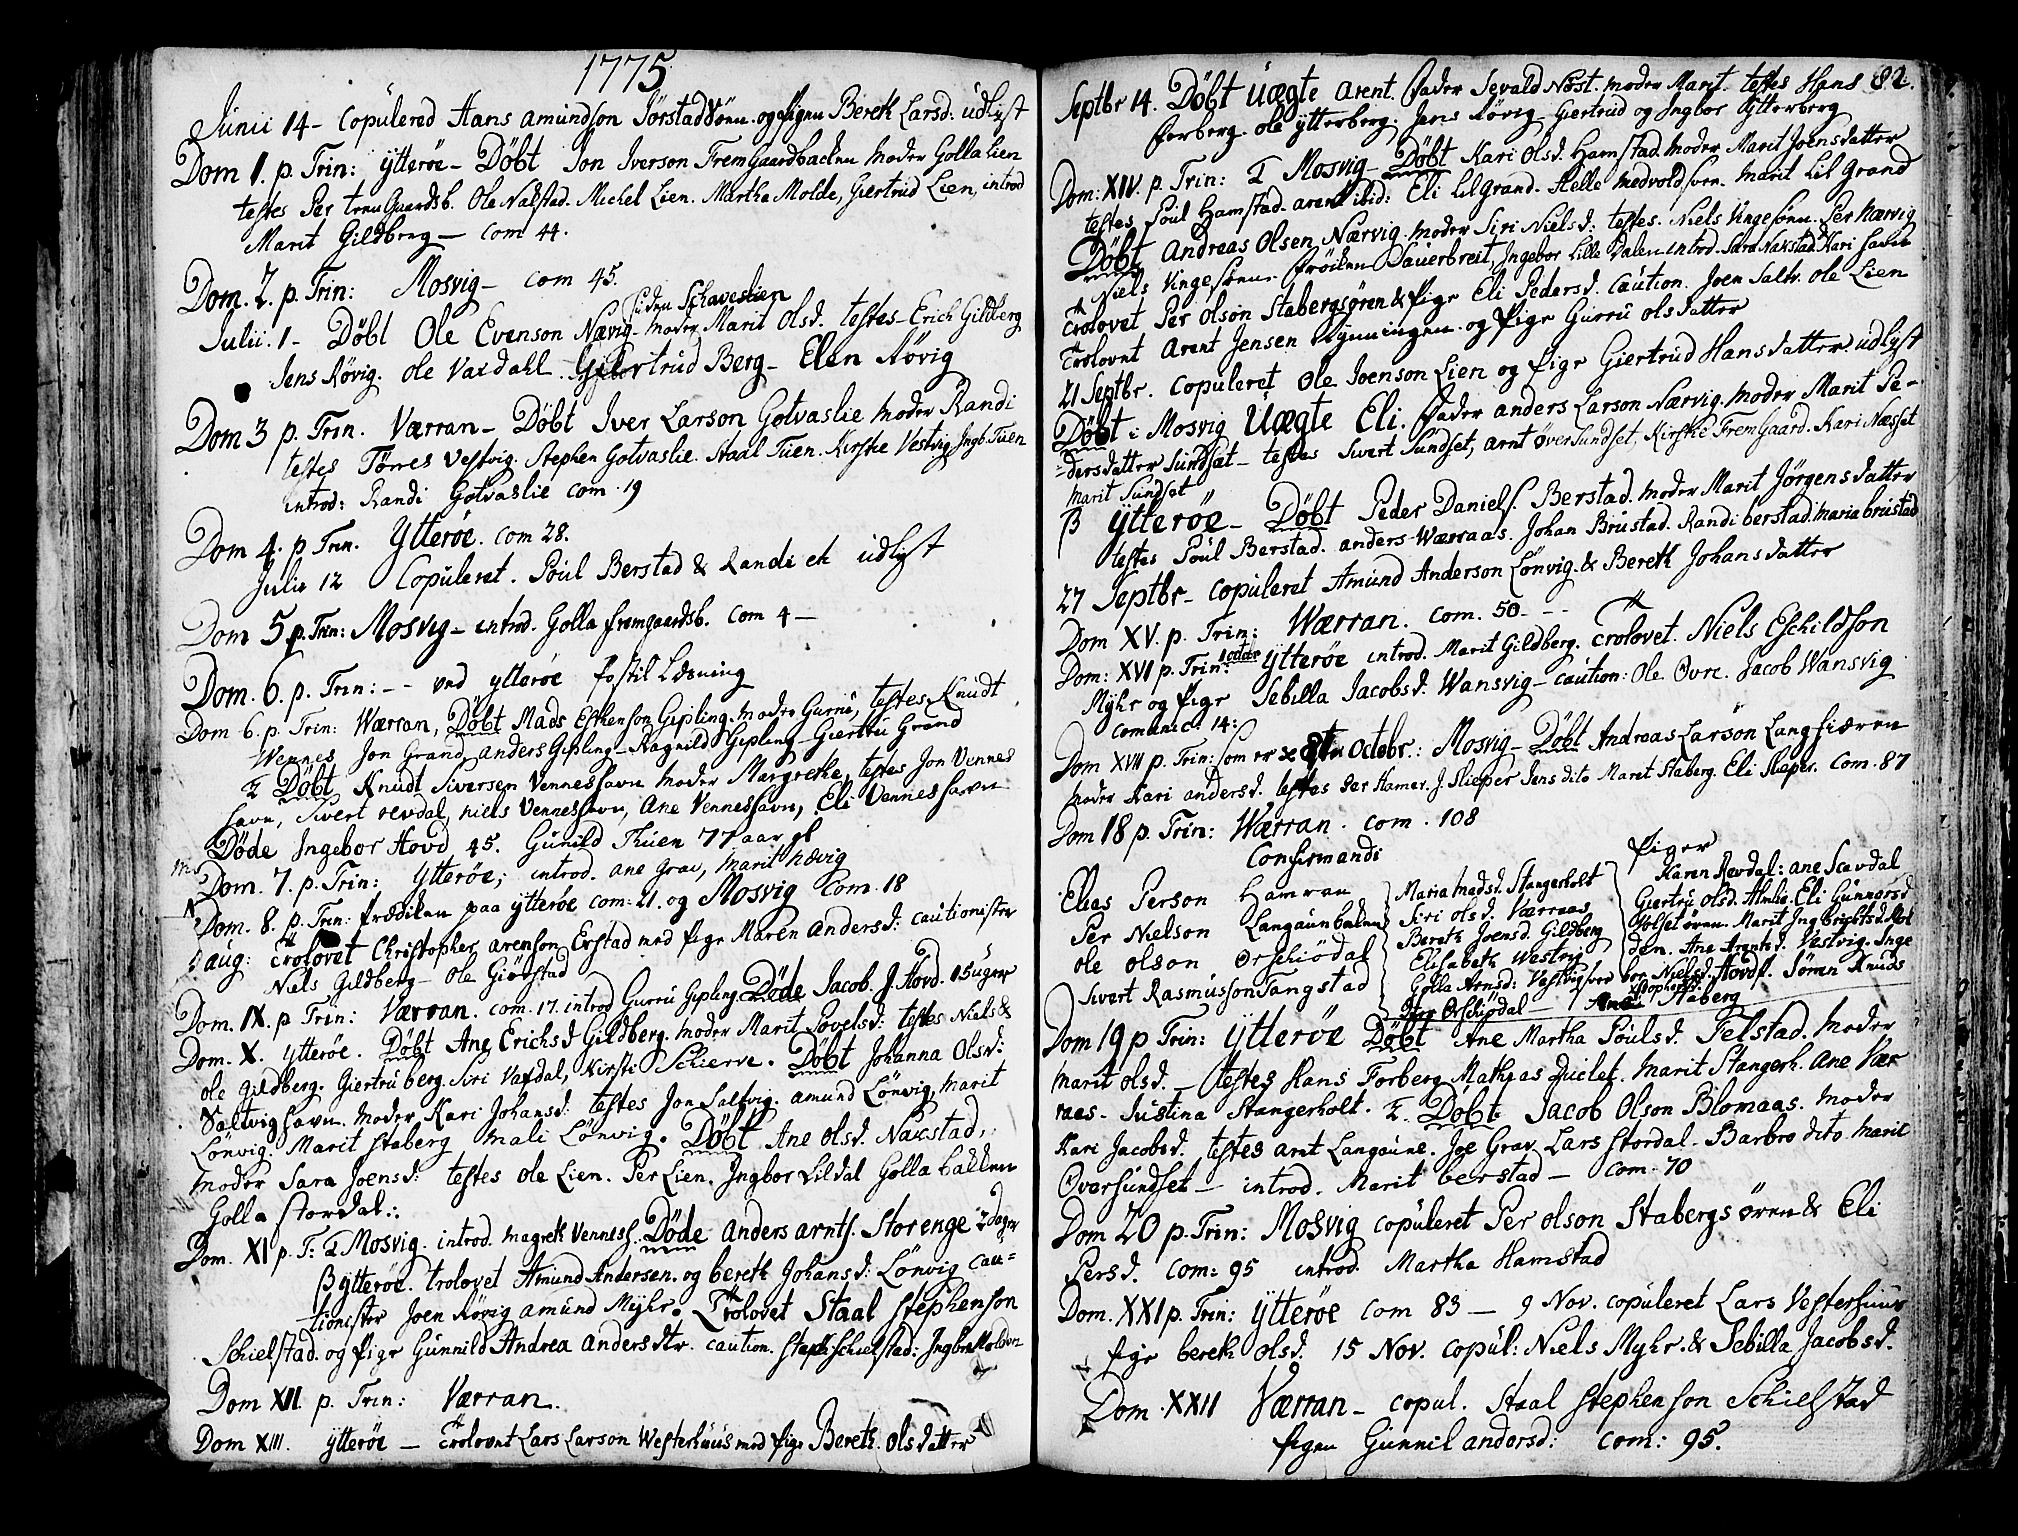 1775
Junii 14 - Copulered Hans Amundson Jörstad og Pigen Bereth Larsd. udlyst
Dom 1. p. Trin: Ytterøe - Döbt Jon Iverson FremGaardbacken Moder Golla Lien
testes Per GaardsB. Ole Nakstad. Michel Lien. Martha Molde, Giertrud Lien, introd
Marit Gildberg - Com 44.
Dom. 2. p. Trin: Mosvig - Com 45.
Julii. 1 - Döbt Ole Evenson Nævig - moder Marit Olsd. testes - Erich Gildberg
Jens Røvig. Ole Vardahl. Giertrud Berg - Elen Røvig
Dom 3 p. Trin. Værran - Döbt Iver Larson Gotvaslie Moder Randi
testes Tørres Vestvig. Stephen Gotvaslie. Staal Tuen. Kirstie Vestvig, Ingb. Tuen
introd: Randi Gotvaslie Com. 19
Dom 4. p Trin. Ytterøe. Com 28.
Julii 12 Copuleret. Poul Berstad & Randi udlyst
Dom 5 p. Trin: Mosvig - introd. Golla fremgaardsb. Com 4 -
Dom. 6. p. Trin: - - ved Ytterøe Postil Læsning
Dom 6. p. Trin: Wærran, Döbt Mads Esthenson Gipling. Moder Gurru, testes Knudt
Wennes Jon Grand, Anders Gipling - Ragnild Gipling - Giertru Grand
Döbt Knudt Siversen Venneshavn Moder Margrethe, testes Jon Vennes
havn, Sivert revdal, niels Venneshavn, Ane Venneshavn, Eli Venneshavn
Döde Ingebor Hovd 45. Gunild Thuen 77 aar gl
Dom. 7. p. Trin: Ytterøe; introd. Ane Grav, Marit Nævig
Dom. 8. p. Trin: Prædiken paa Ytterøe Com: 21. og Mosvig Com. 18
aug: Trolovet Christopher Arenson Erstad med Pige Maren Andersd: cautionister
Niels Gildberg - Ole Giörstad
Dom. IX. p Trin: Værran. Com. 17. introd Gurru Gipling. Döde Jacob. J. Hovd. 15 uger
Dom. X. Ytterøe. Döbt Ane Erichsd Gildberg. moder Marit Povelsd: testes Niels &
Ole Gildberg. Giertru berg. Siri Vardal, Kirsti Schierve. Döbt Johanna Olsd:
Saltvighavn. Moder Kari Johansd: testes Jon Saltvig. Amund Lönvig, Marit
Lönvig. Marit Staberg Mali Lönvig. Döbt Ane Olsd. Nakstad,
Moder Sara Joensd: testes Ole Lien. Per Lien. Ingbor Lildal Golla bakken
Golla Stordal:.
Dom. XI p. T: Mosvig. introd. Magreth Venness. Döde Anders Arnts. Storenge 2 dager
Ytterøe. Trolovet Amund Andersen. og bereth Johansd: Lönvig Cau=
tionister Joen Røvig Amund Myhr. Trolovet Staal Stephenson
Schielstad. og Pige Gunnild Andrea Andersdtr. caution. Steph Schielstad: Ingbr
Dom XII. p. Trin: Værran.
Dom XIII. Ytterøe - Trolovet Lars Larson Westerhuus med Pige Bereth. Olsdatter
82.
Septbr 14. Döbt Uægte Arent. Fader Sevald Næst. moder Marit. testes Hans
Forberg. Ole Ytterberg. Jens Røvig Giertrud og Ingbor Ytterberg
Dom: XIV. p. Trin: Mosvig - Döbt Kari Olsd. Hamstad. Moder Marit Joensdatter
testes Poul Hamstad. Arent ibid: Eli Lilgrand. Helle Medvold Marit Lil Grand
Döbt Andreas Olsen Nærvig. moder Siri Nielsd: testes. Niels Per Nærvig
Niels Frøiken Sauerbreit, Ingebor Lille Dalen introd. Sara Nakstad. Kari
Trolovet Per Olson Stabergsøren & Pige Eli Pedersd. Caution. Joen Ole Lien
Trolovet Arent Jensen og Pige Gurru Olsdatter
21 Septbr. Copuleret Ole Joenson Lien og Pige Giertrud Hansdatter. udlyst
Döbt i Mosvig Uægte Eli. Fader Anders Larson Nærvig. moder Marit Pe-
dersdatter Sundset - testes Sivert Sundset, Arnt Øversundset, Kirstie FremGaard. Kari Næsset
Marit Sundset
Ytterøe - Döbt Peder Daniels. Berstad. moder Marit Jörgensdatter
testes Poul Berstad. Anders Wærraas. Johan Brustad. Randi berstad. Maria brustad
27 Septbr - Copuleret Amund Anderson Lönvig. & Bereth Johansdatter
Dom XV. p. Trin: Wærran. Com. 50. - -
Dom: XVI p. Trin: 1 octbr Ytterøe introd. Marit Gildberg. Trolovet. Niels Eschildson
Myhr og Pige Sebilla Jacobsd. Wansvig - caution: Ole Øvre. Jacob Wansvig
Comunic: 14:
Dom XVII p. Trin: som er Octobr: Mosvig - Döbt Andreas Larson Langfiæren
Moder Kari Andersd. testes Per Hamer. J. Slieper Jens dito Maret Staberg. Eli Slieper. Com. 87
Dom 18 p. Trin: Wærran. Com. 108
Confirmandi
Piger
Elias Person Hamran
Per Nielson Langaunbalen
Ole Olson Orschiödal
Sivert Rasmusson Tangstad
Maria Madsd. Stangerholt
Siri Olsd. Værraas
Bereth Joensd. Gildberg
Elisabeth Westvig
Golla Arnsd: Vestvig
Orschiödal - Ane Xstophersd: Staberg
Karen Revdal: Ane Scavdal
Giertru Olsd. Almlie. Eli Gunnarsd
Holsetøren. Marit Ingbrichtsd Mol
den. Ane Arentsd. Vestvig. Inge
bor Nielsd. Hovds. Sören Knuds
Dom 19 p Trin: Ytterøe Döbt Ane Martha Poulsd. Felstad. Moder
Marit Olsd. - testes Hans Forberg Mathias Duclet. Marit Stangerh. Ane Vær
raas - Justina Stangerholt. Döbt Jacob Olson Blomaas. Moder
Kari Jacobsd. testes Arnt Langaune. Joe Grav Lars Stordal - Barbro dito Marit
Oversundset - introd. Marit berstad - Com. 70
Dom 20 p. Trin: Mosvig Copuleret Per Olson Stabergsøren & Eli
Persd. Com: 95 introd. Martha Hamstad
Dom. XXI p. Trin: Ytterøe Com 83 - 9 Nov. copuleret Lars Vesterhuus
Pige bereth Olsd. 15 Nov. copul: Niels Myhr. & Sebilla Jacobsd.
Dom. XXII Værran - copul. Staal Stephenson Schielstad
Pigen Gunnil Andersd: Com: 95.